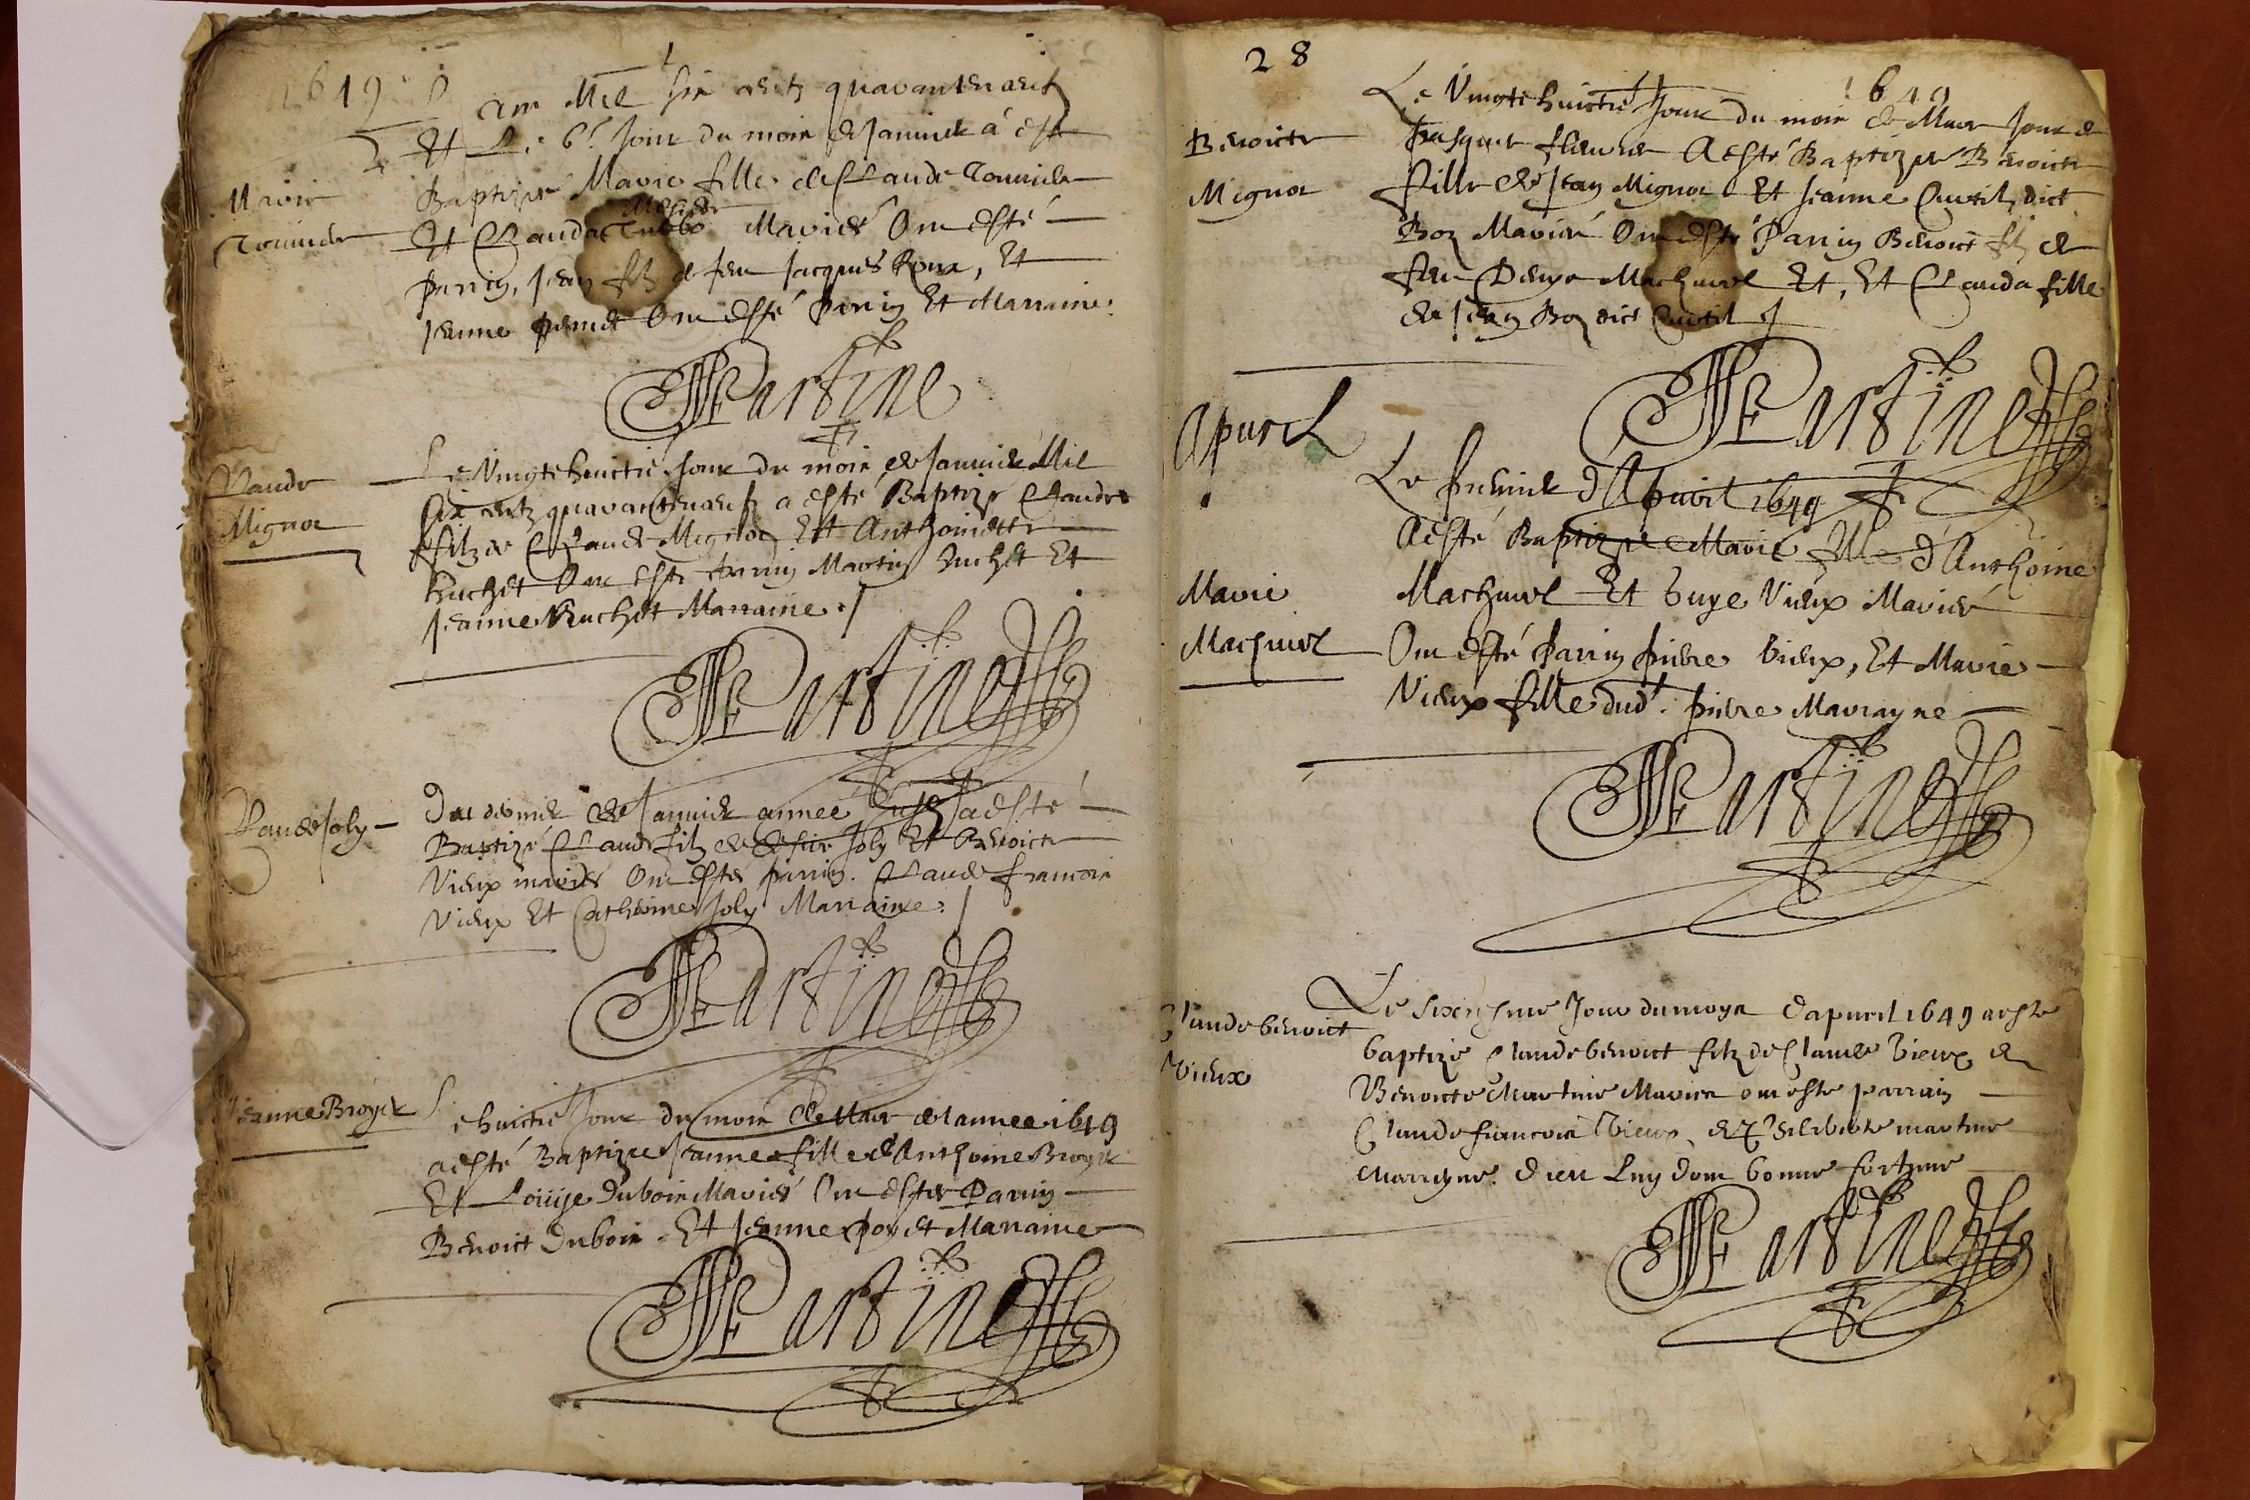 1649
Mil six centz quaranteneuf
Et Le 6e Jour du mois de Januier a esté
Marie
Baptizée Marie fille de Claude
Et Clauda Mariés Ont esté
Parrin, Jean filz de feu Jacques Roux, Et
Jeanne Ont esté Parrin Et Marraine.
Martine
Claude
Mignot
Le Vingtehuictie Jour du mois de Januier Mil
six centz quaranteneuf a esté Baptizé Claude
filz de Claude Mignot Et Anthoinette
Ruchet Ont esté Parrin Martin Ruchet Et
Jeanne Ruchet Marraine
Martine
Claude Joly
Du dernier de Januier année susd a esté
Baptizé Claude filz de Joly Et Benoicte
Vieux mariés Ont estes parrin Claude francois
Vieux Et Catherine Joly Marraine
Martine
Jeanne Broyer
Le huictie Jour du mois de Mars de lannee 1649
a esté Baptizée Jeanne fille d'Anthoine Broyer
Et Louyse Dubois Mariés Ont estes Parrin
Benoict Dubois Et Jeanne Poyet Marraine
Martine
28
1649
Benoicte
Mignot
Le Vingtehuictie Jour du mois de Mars Jour de
Pasques fleuries A esté Baptizée Benoicte
fille de Jean Mignot Et Jeanne Curtil dict
Boz Mariés Ont esté Parrin Benoict filz de
feu Denys Machurel Et, Et Clauda fille
de Jean Boz dict Curtil
Martine
Apuril
Le Premier d'Apuril 1649
A esté Baptizée Marie fille d'Anthoine
Marie
Machurel
Machurel Et Suye Vieux Mariés
Ont esté Parrin Pierre Vieux, Et Marie
Vieux fille dudt. Pierre Marrayne
Martine
Claude benoict
Vieux
Le sixiesme Jour du moys d apuril 1649 a este
baptize Claude benoict filz de Claude Vieux et
Benoicte Martine Maries ont este parrain
Claude francois Vieux et Philiberte martine
Marreyne. Dieu Luy doin bonne fortune
Martine